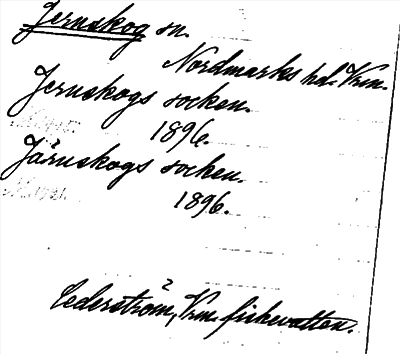 Jernskog sn.
Nordmarks hd. Vrm.
Jernskogs socken.
1896.
Järnskogs socken.
1896.
Cederström, Vrm. fiskevatten.